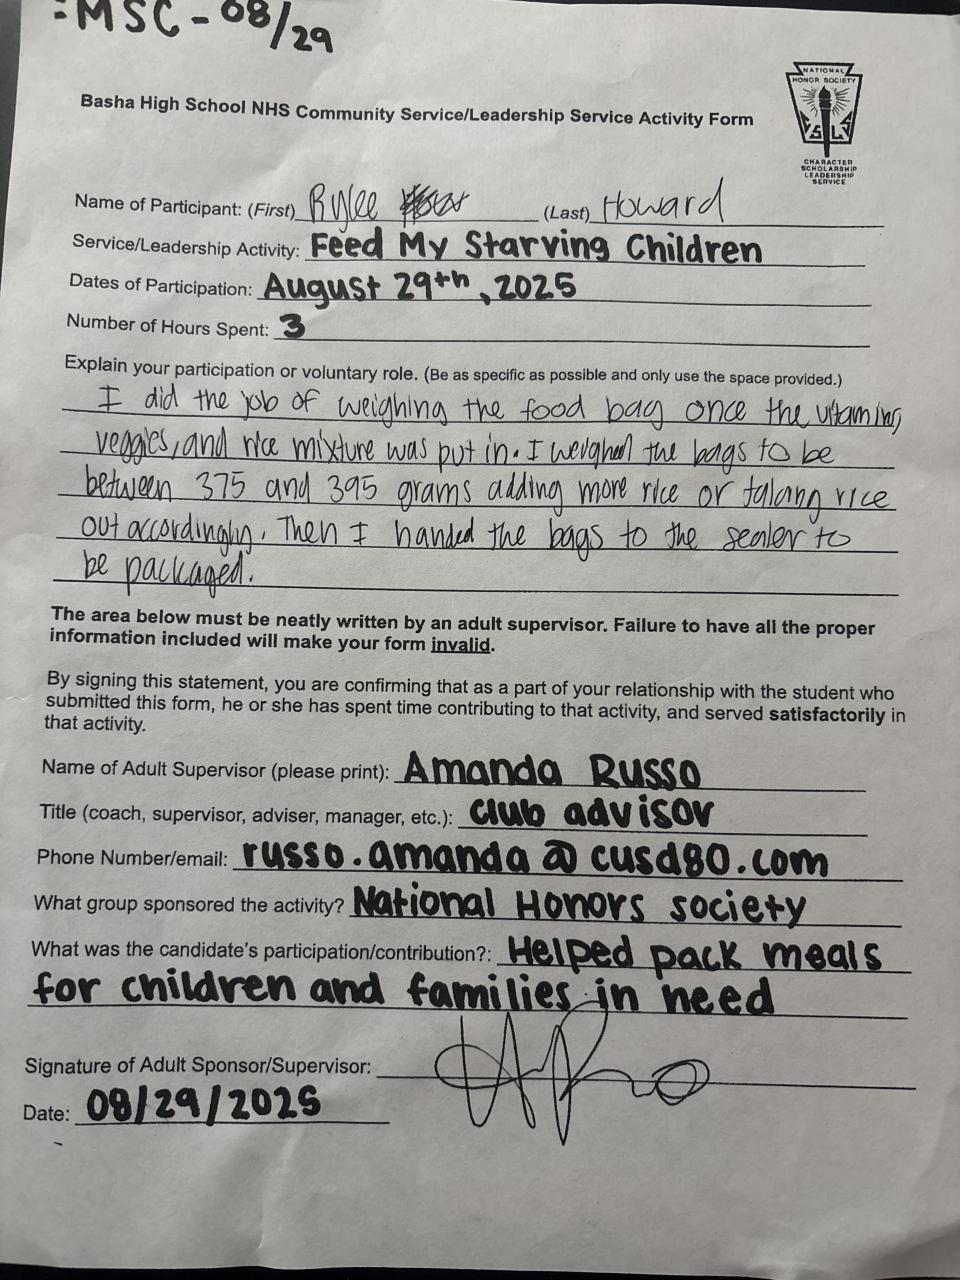 :MSC - 08/29
NATIONAL
HONOR SOCIETY
CSLS
CHARACTER
SCHOLARSHIP
LEADERSHIP
SERVICE
Basha High School NHS Community Service/Leadership Service Activity Form
Name of Participant: (First) Rylee (Last) Howard
Service/Leadership Activity: Feed My Starving Children
Dates of Participation: August 29th, 2025
Number of Hours Spent: 3
Explain your participation or voluntary role. (Be as specific as possible and only use the space provided.)
I did the job of weighing the food bag once the vitamins,
veggies, and rice mixture was put in. I weighed the bags to be
between 375 and 395 grams adding more rice or taking rice
out accordingly. Then I handed the bags to the sealer to
be packaged.
The area below must be neatly written by an adult supervisor. Failure to have all the proper
information included will make your form invalid.
By signing this statement, you are confirming that as a part of your relationship with the student who
submitted this form, he or she has spent time contributing to that activity, and served satisfactorily in
that activity.
Name of Adult Supervisor (please print): Amanda Russo
Title (coach, supervisor, adviser, manager, etc.): club advisor
Phone Number/email: russo.amanda@cusd80.com
What group sponsored the activity? National Honors society
What was the candidate's participation/contribution?: Helped pack meals
for children and families in need
Signature of Adult Sponsor/Supervisor:
Date: 08/29/2025